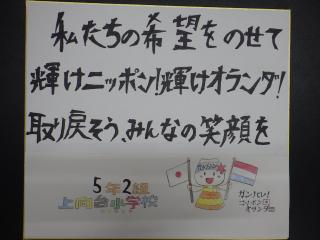 私たちの希望をのせて
輝けニッポン!輝けオランダ!
取り戻そう、みんなの笑顔を
5年2組
上向台小学校
ガンバレ!
ニッポン
オランダ